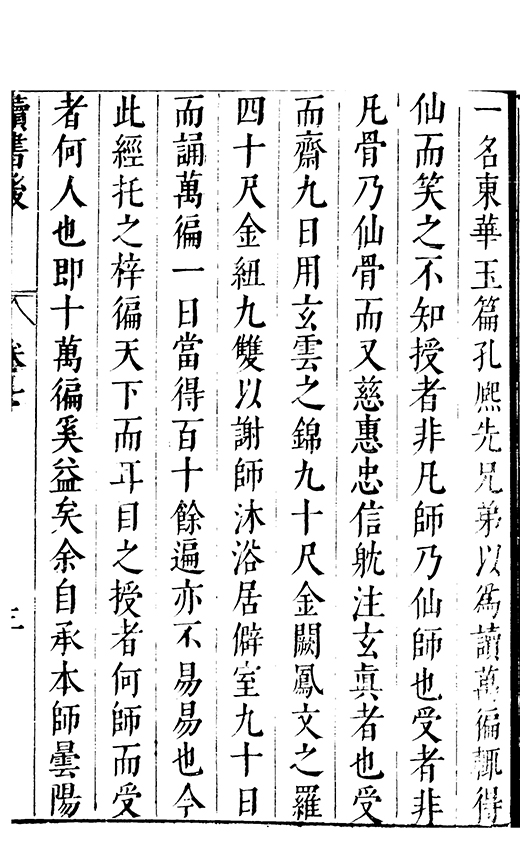 一名東華玉篇孔熈先兄弟以爲讀萬徧輒得
仙而笑之不知授者非凡師乃仙師也受者非
凡骨乃仙骨而又慈惠忠信躭注玄眞者也受
而齋九日用玄雲之錦九十尺金闕鳳文之羅
四十尺金紐九雙以謝師沐浴居僻室九十日
而誦萬徧一日當得百十餘遍亦不易易也今
此經托之梓徧天下而耳目之授者何師而受
者何人也即十萬徧奚益矣余自承本師曇陽
讀書後 卷七 三